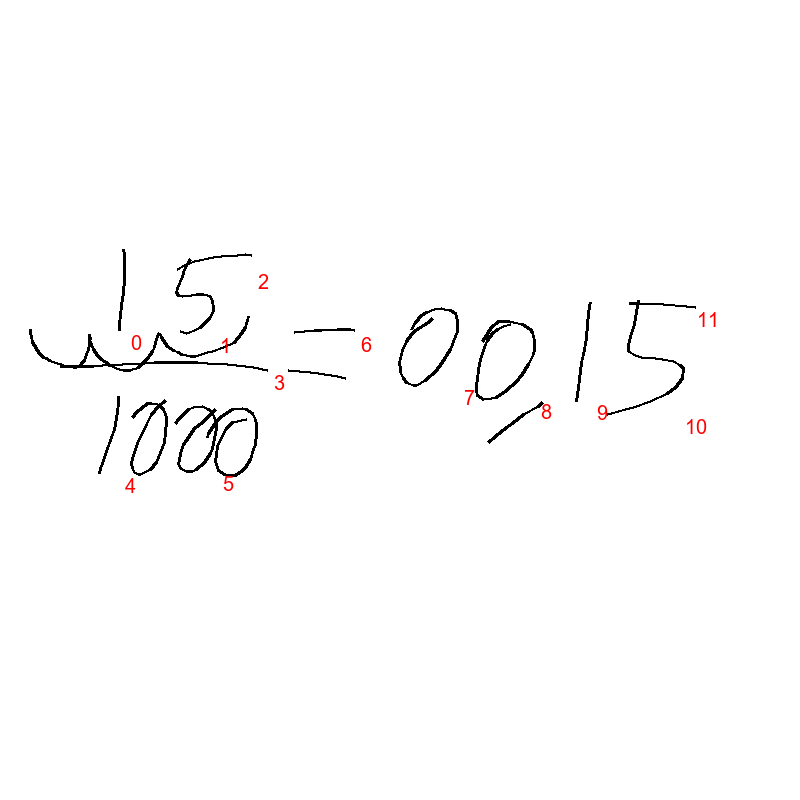 15
1000
= 00,15
0
1
2
3
4
5
6
7
8
9
10
11